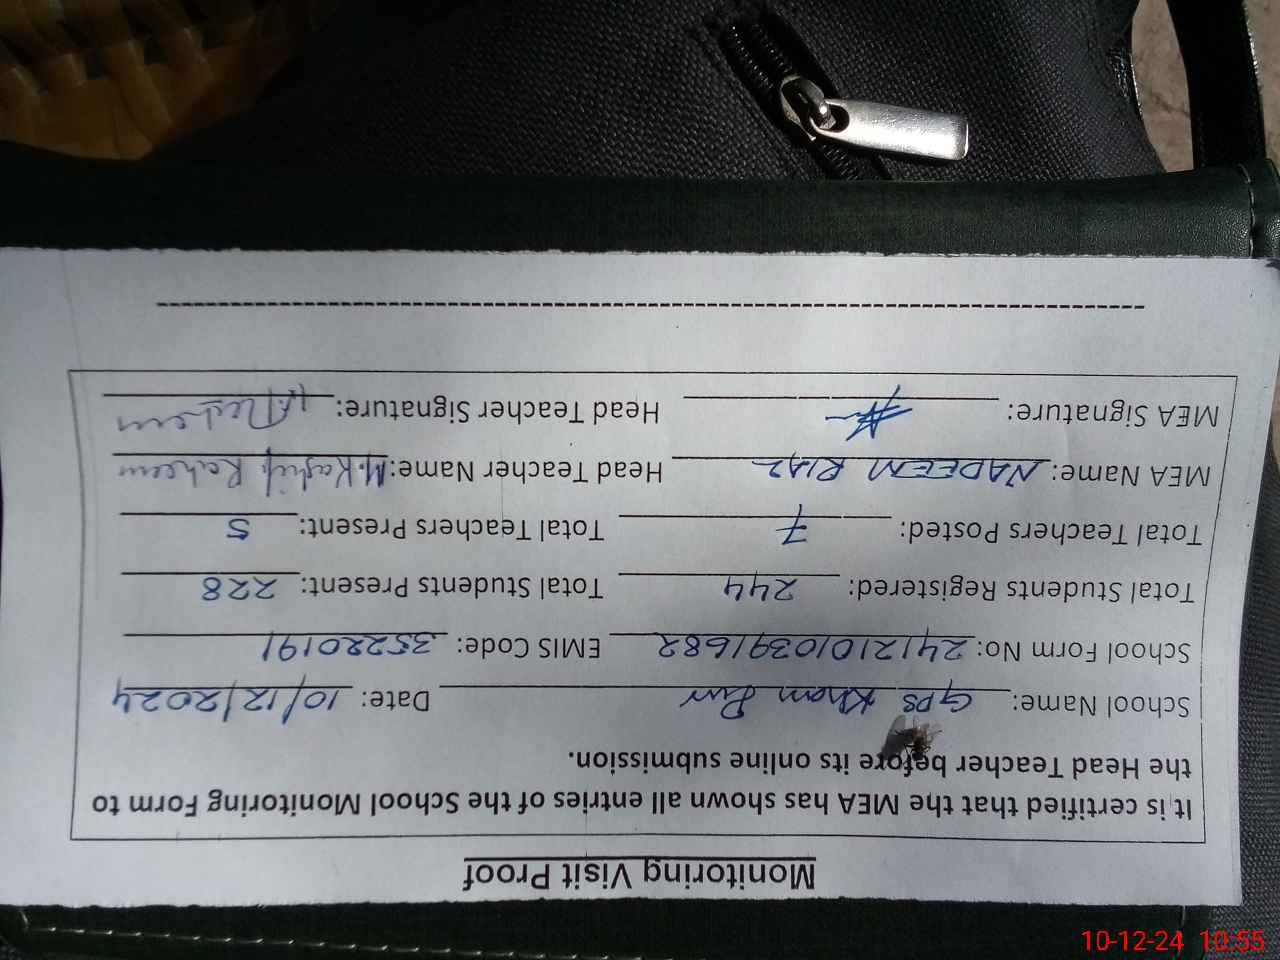 Monitoring Visit Proof
It is certified that the MEA has shown all entries of the School Monitoring Form to
the Head Teacher before its online submission.
School Name: GPS Khan Pur Date: 10/12/2024
School Form No: 24121010391682 EMIS Code: 35220191
Total Students Registered: 244 Total Students Present: 228
Total Teachers Posted: 7 Total Teachers Present: 5
MEA Name: NADEEM RIAZ Head Teacher Name: M. Kashif Raheem
MEA Signature: Head Teacher Signature:
10-12-24 10:55